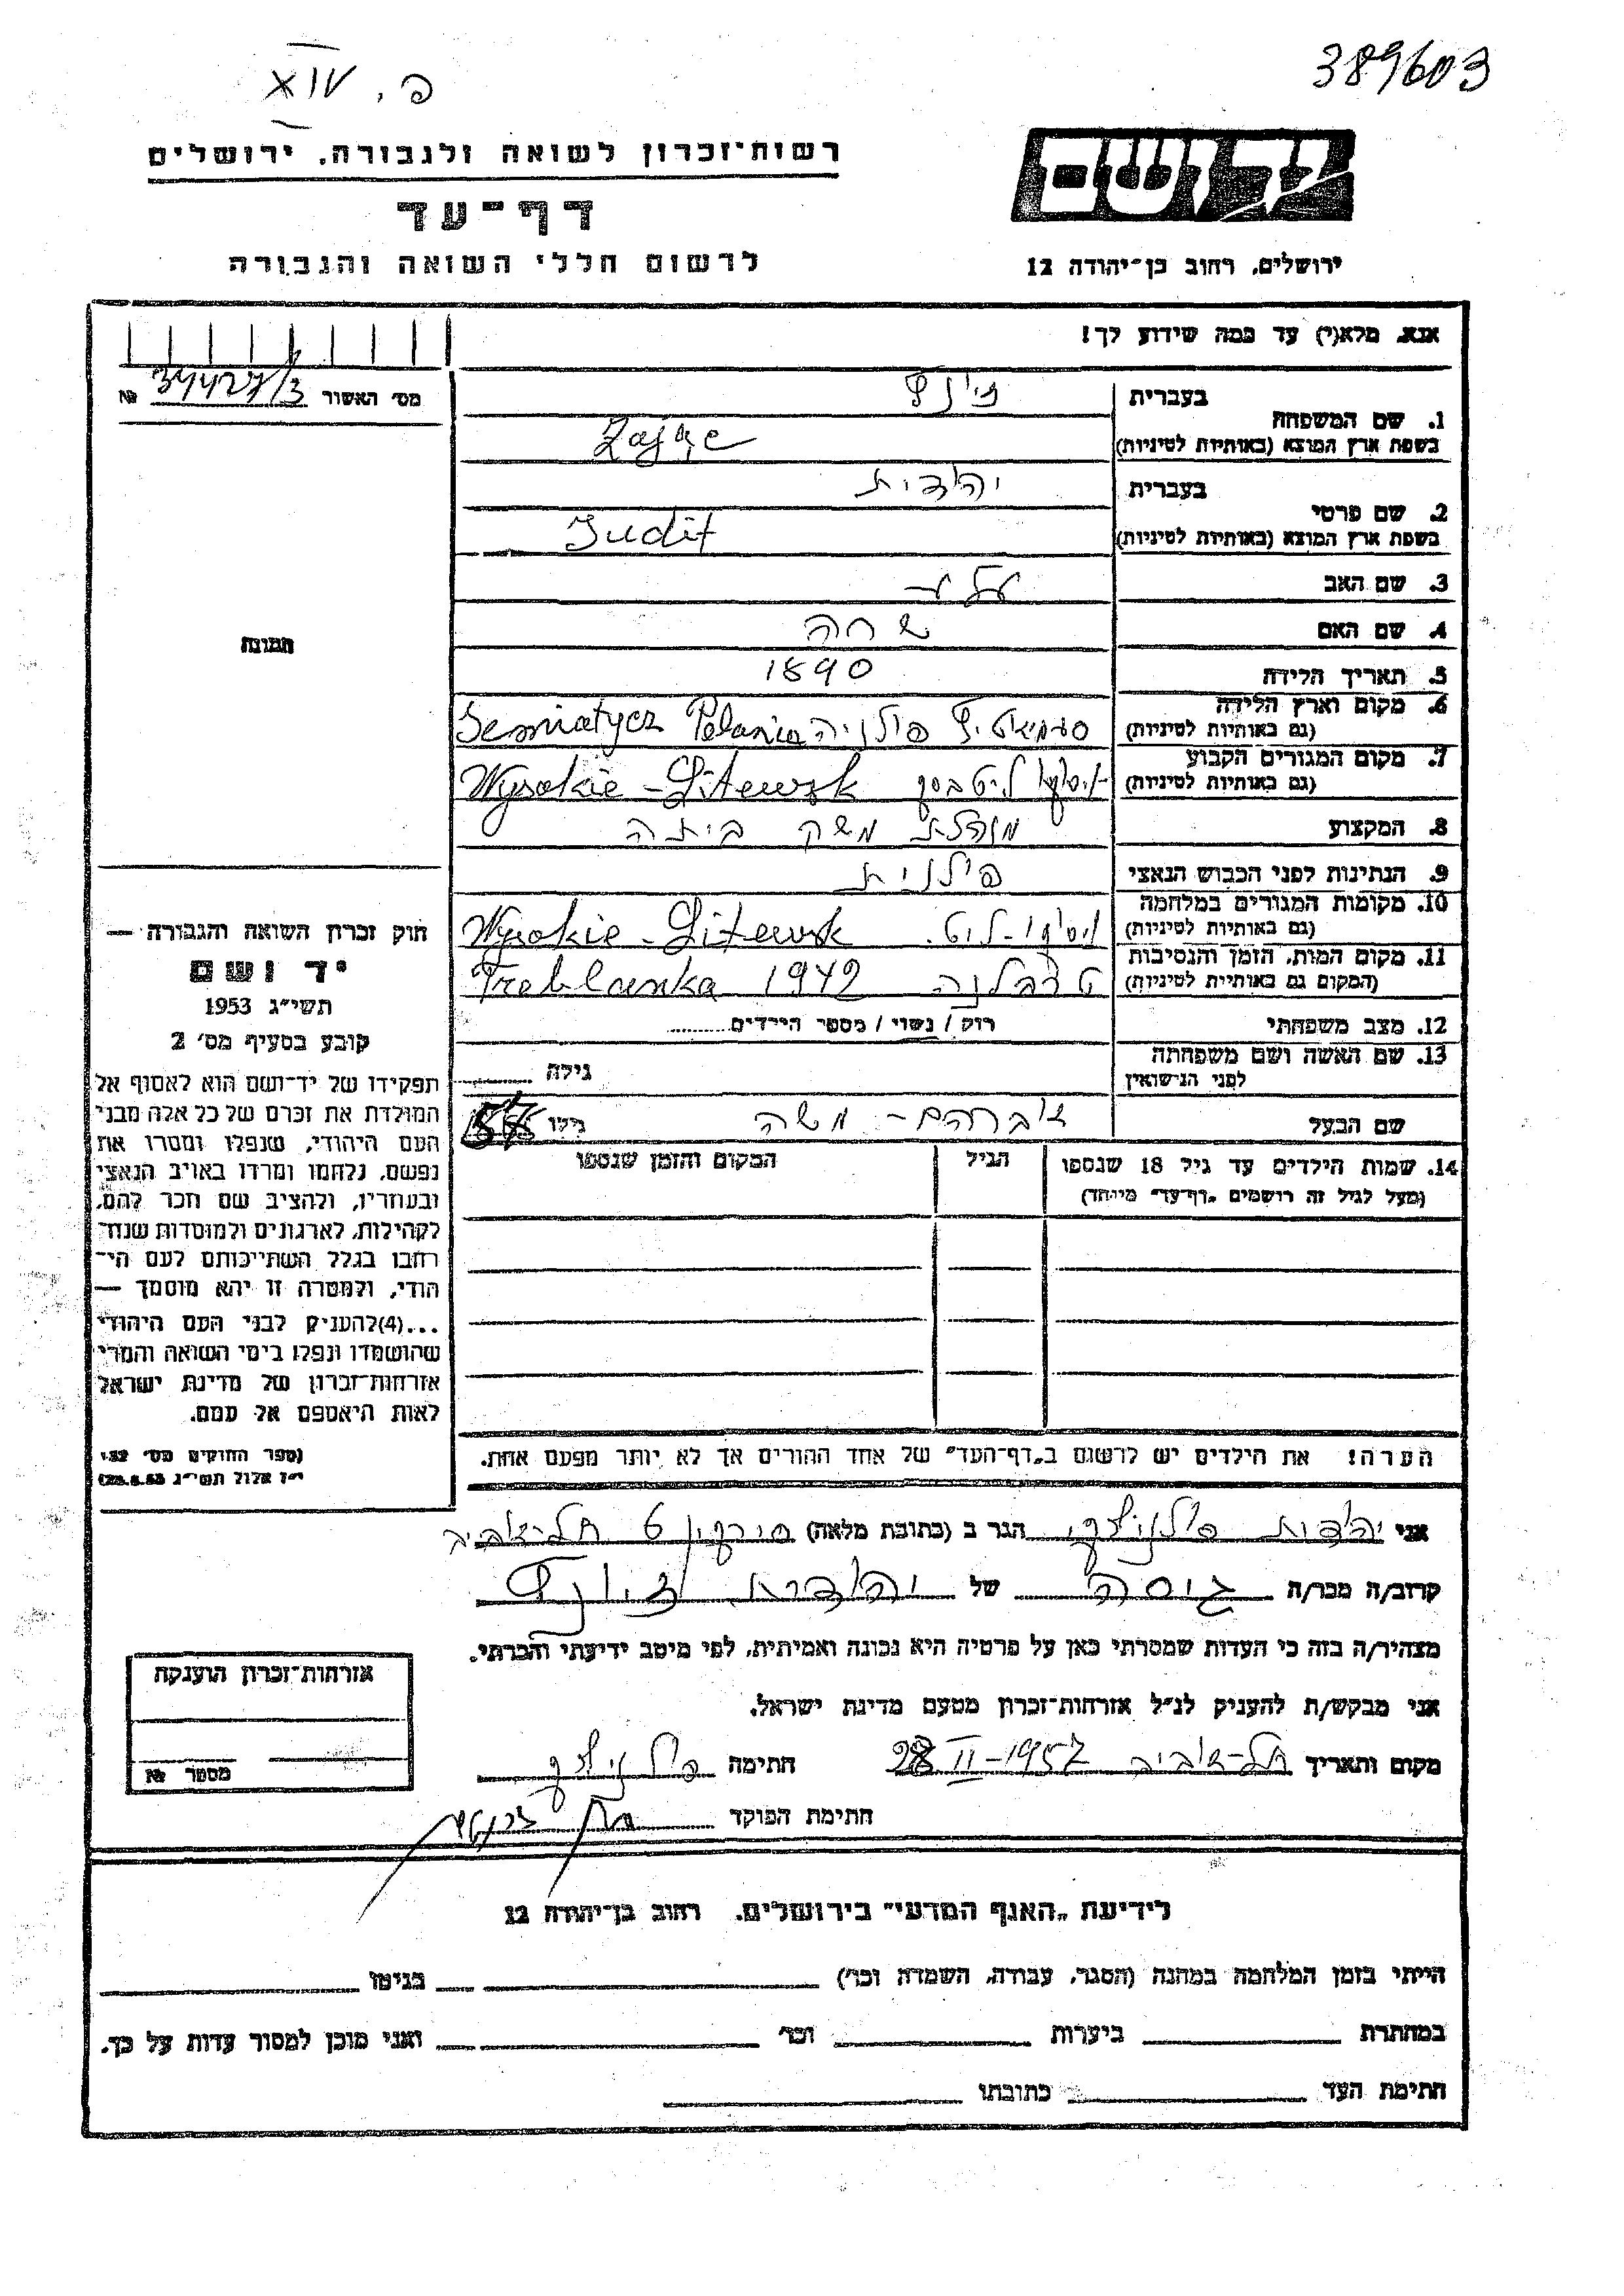 389603
פ. XIV
יד ושם
רשות-זכרון לשואה ולגבורה, ירושלים
דף-עד
לרשום חללי השואה והגבורה
ירושלים, רחוב בן-יהודה 12
אנא, מלא(י) עד כמה שידוע לך!
מס׳ האשור 34427/3 №
1. שם המשפחה
בעברית
בשפת ארץ המוצא (באותיות לטיניות) Zając
2. שם פרטי
בעברית יהודית
בשפת ארץ המוצא (באותיות לטיניות) Judit
3. שם האב
4. שם האם שרה
5. תאריך הלידה 1890
6. מקום וארץ הלידה
(גם באותיות לטיניות) פולניה Semiatycz Polania
7. מקום המגורים הקבוע
(גם באותיות לטיניות) Wysokie-Litewsk
8. המקצוע משק ביתה
9. הנתינות לפני הכבוש הנאצי פולנית
10. מקומות המגורים במלחמה
(גם באותיות לטיניות) ויסוקי-ליט. Wysokie-Litewsk
11. מקום המות, הזמן והנסיבות
(המקום גם באותיות לטיניות) טרבלנקה 1942 Treblanka
12. מצב משפחתי רווק / נשוי / מספר הילדים
13. שם האשה ושם משפחתה
לפני הנישואין גילה
שם הבעל אברהם-משה גילו
14. שמות הילדים עד גיל 18 שנספו
(מעל לגיל זה רושמים "דף-עד" מיוחד)
הגיל
המקום והזמן שנספו
הערה! את הילדים יש לרשום ב"דף-העד" של אחד ההורים אך לא יותר מפעם אחת.
תמונה
חוק זכרון השואה והגבורה —
יד ושם
תשי"ג 1953
קובע בסעיף מס׳ 2
תפקידו של יד-ושם הוא לאסוף אל
המולדת את זכרם של כל אלה מבני
העם היהודי, שנפלו ומסרו את
נפשם, נלחמו ומרדו באויב הנאצי
ובעוזריו, ולהציב שם וזכר להם,
לקהילות, לארגונים ולמוסדות שנח-
רבו בגלל השתייכותם לעם הי-
הודי, ולמטרה זו יהא מוסמך —
...(4) להעניק לבני העם היהודי
שהושמדו ונפלו בימי השואה והמרי
אזרחות-זכרון של מדינת ישראל
לאות היאספם אל עמם.
(ספר החוקים מס׳ 132,
י"ז אלול תשי"ג 28.8.53)
אני יהודית הגר ב (כתובת מלאה) 6 תל-אביב
קרוב/ה מכר/ה גיסה של יהודית
מצהיר/ה בזה כי העדות שמסרתי כאן על פרטיה היא נכונה ואמיתית, לפי מיטב ידיעתי והכרתי.
אני מבקש/ת להעניק לנ"ל אזרחות-זכרון מטעם מדינת ישראל.
מקום ותאריך תל-אביב 28 II-1957 חתימה
חתימת הפוקד
אזרחות-זכרון הוענקה
מספר №
לידיעת "האגף המדעי" בירושלים, רחוב בן-יהודה 12
הייתי בזמן המלחמה במחנה (הסגר, עבודה, השמדה וכו׳) בגיטו
במחתרת ביערות וכו׳ ואני מוכן למסור עדות על כך.
חתימת העד כתובתו